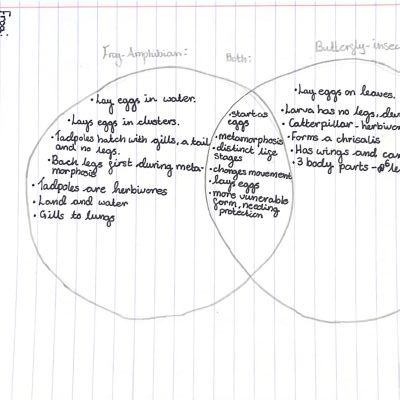 Frog:
Frog-Amphibian:
Both:
Butterfly-insec
• Lay eggs in water.
• Lays eggs in clusters.
• Tadpoles hatch with gills, a tail
and no legs.
• Back legs first during meta-
morphosis
• Tadpoles are herbivores
• Land and water
• Gills to lungs
• start as
eggs
• metamorphosis
• distinct life
stages
• changes movement
• lays eggs
• more vunerable
form, needing
protection
• Lay eggs on leaves.
• Larva has no legs,
• Catterpillar - herbivor
• Forms a chrisalis
• Has wings and can
• 3 body parts - 6 le